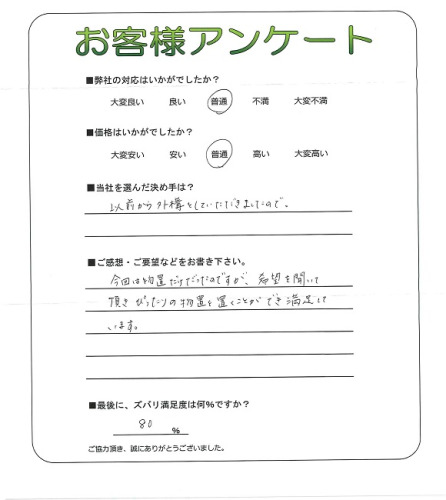 お客様アンケート
■弊社の対応はいかがでしたか？
大変良い 良い 普通 不満 大変不満
■価格はいかがでしたか？
大変安い 安い 普通 高い 大変高い
■当社を選んだ決め手は？
以前から外構をしていただきましたので。
■ご感想・ご要望などをお書き下さい。
今回は物置だけだったのですが、希望を聞いて
頂きぴったりの物置を置くことができ満足して
います。
■最後に、ズバリ満足度は何％ですか？
80 ％
ご協力頂き、誠にありがとうございました。